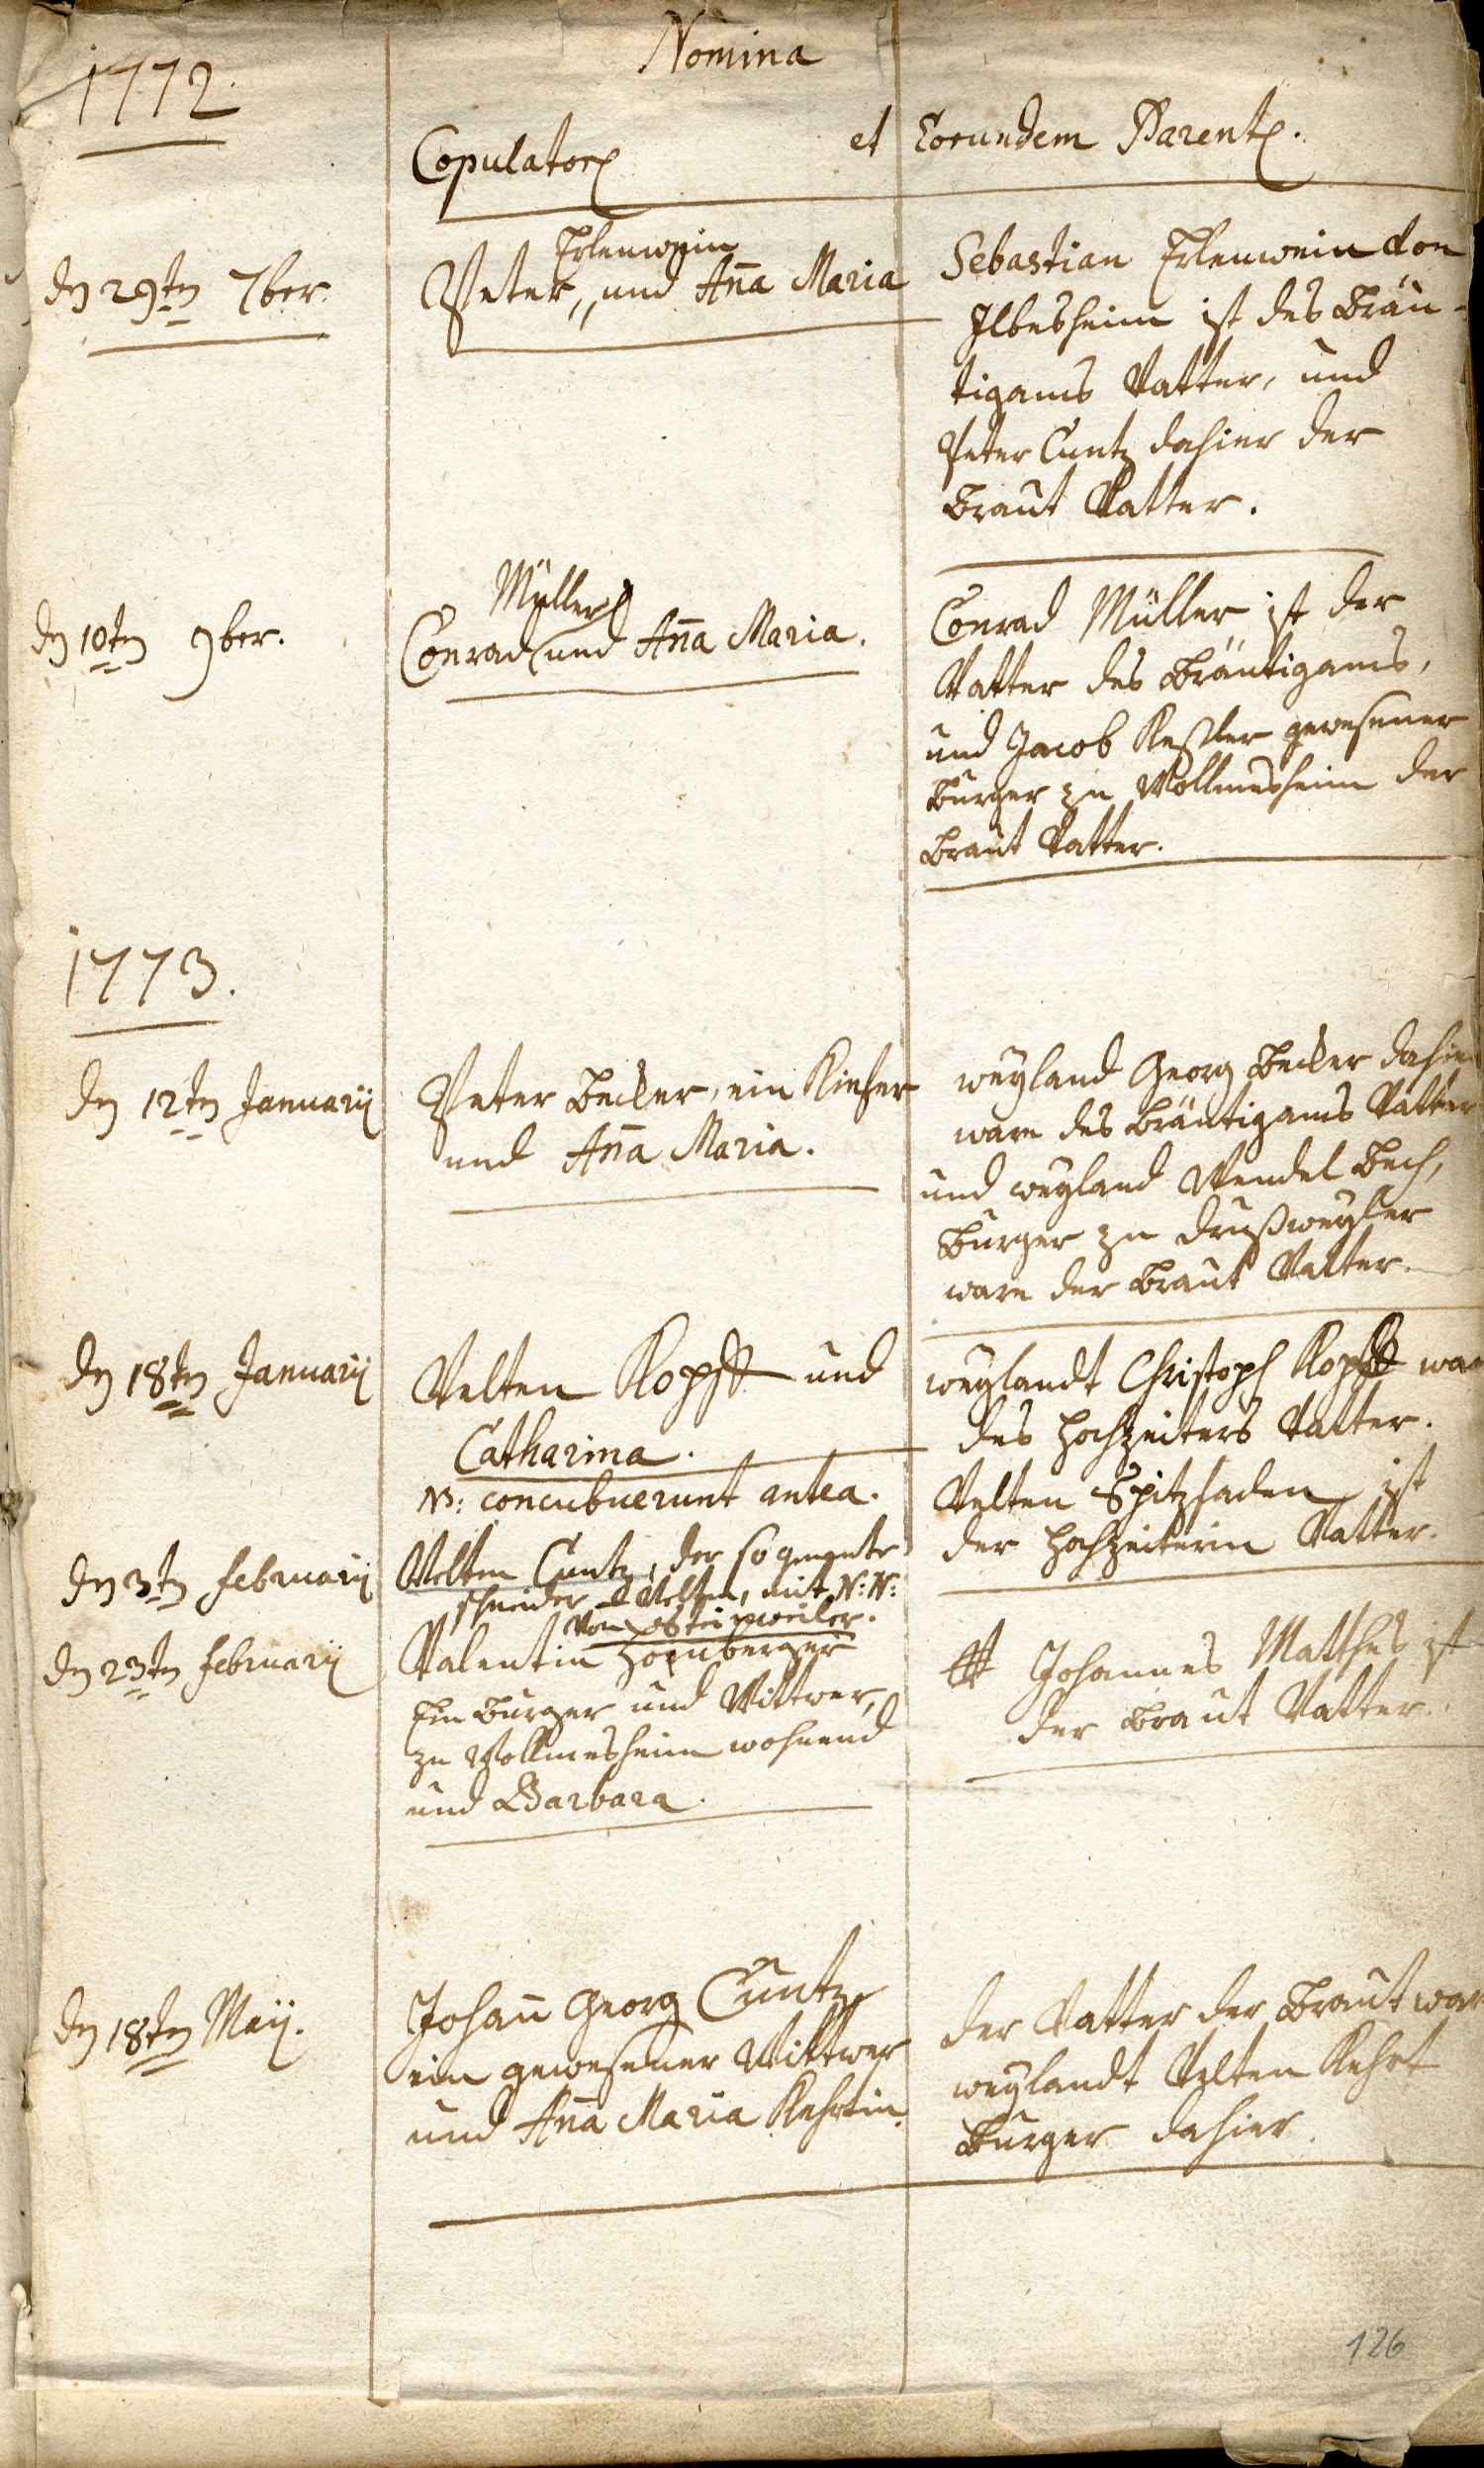 1772.
Nomina
Copulator et Eorundem Parent.
dn 29tn 7ber.
Erlenwein
Peter, und Aña Maria
Sebastian Erlenwein von
Ilbesheim ist des Bräu-
tigams Vatter, und
Peter Cuntz dahier der
Braut Vatter.
dn 10tn 9ber.
Müller
Conrad und Aña Maria.
Conrad Müller ist der
Vatter des Bräutigams,
und Jacob Keßler gewesener
Burger zu Wollmesheim der
Braut Vatter.
1773.
dn 12tn Januarij
Peter Becker, ein Kiefer
und Aña Maria.
weyland Georg Becker dahier
ware des Bräutigams Vatter
und weyland Wendel Bech,
Burger zu Drußweyler
ware der Braut Vatter.
dn 18tn Januarij
Velten Kopff und
Catharina.
NB: concubuerunt antea.
weylandt Christoph Kopff war
des Hochzeiters Vatter.
Velten Spitzfaden ist
der Hochzeiterin Vatter.
dn 3tn februarij
Velten Cuntz, der sogenante
schneider Velten, mit N: N:
von
dn 23tn februarij
Valentin Hornberger
Ein Burger und Wittwer,
zu Wollmesheim wohnend
und Barbara.
Johannes Matthes ist
der Braut Vatter.
dn 18tn Maij.
Johañ Georg Cuntz
ein gewesener Wittwer
und Aña Maria Kehrtin.
der Vatter der Braut war
weylandt Velten Kehrt
Burger dahier.
126